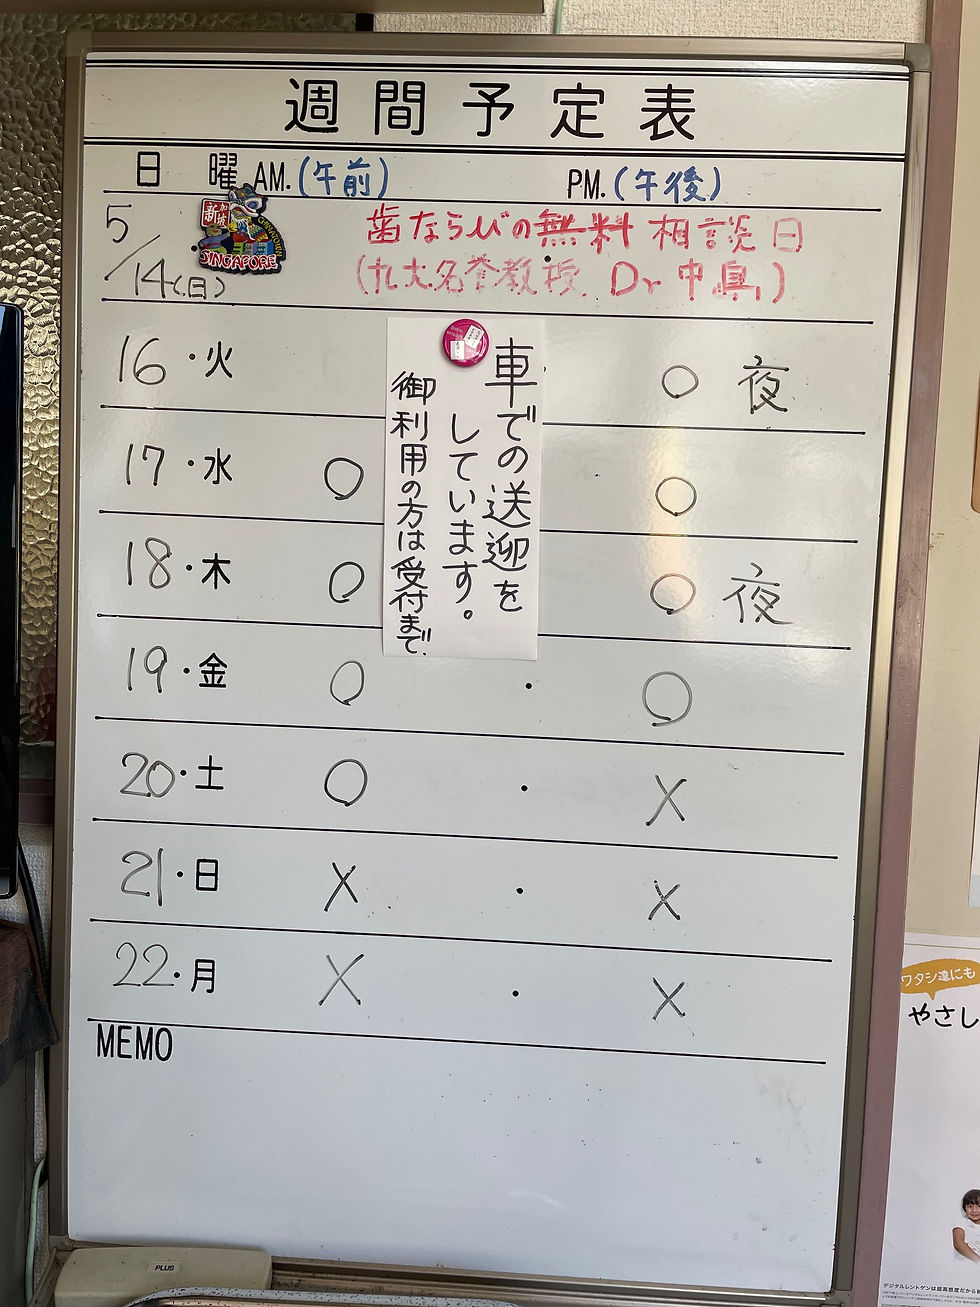 週間予定表
日 曜 AM.(午前) PM.(午後)
新加坡
SINGAPORE
5/14(日) 歯ならびの無料相談日
(九大名誉教授 Dr中島)
車での送迎を
しています。
御利用の方は受付まで.
16・火 ○ 夜
17・水 ○ ○
18・木 ○ ○ 夜
19・金 ○ ・ ○
20・土 ○ ・ X
21・日 X ・ X
22・月 X ・ X
MEMO
PLUS
ワタシ達にも
やさし